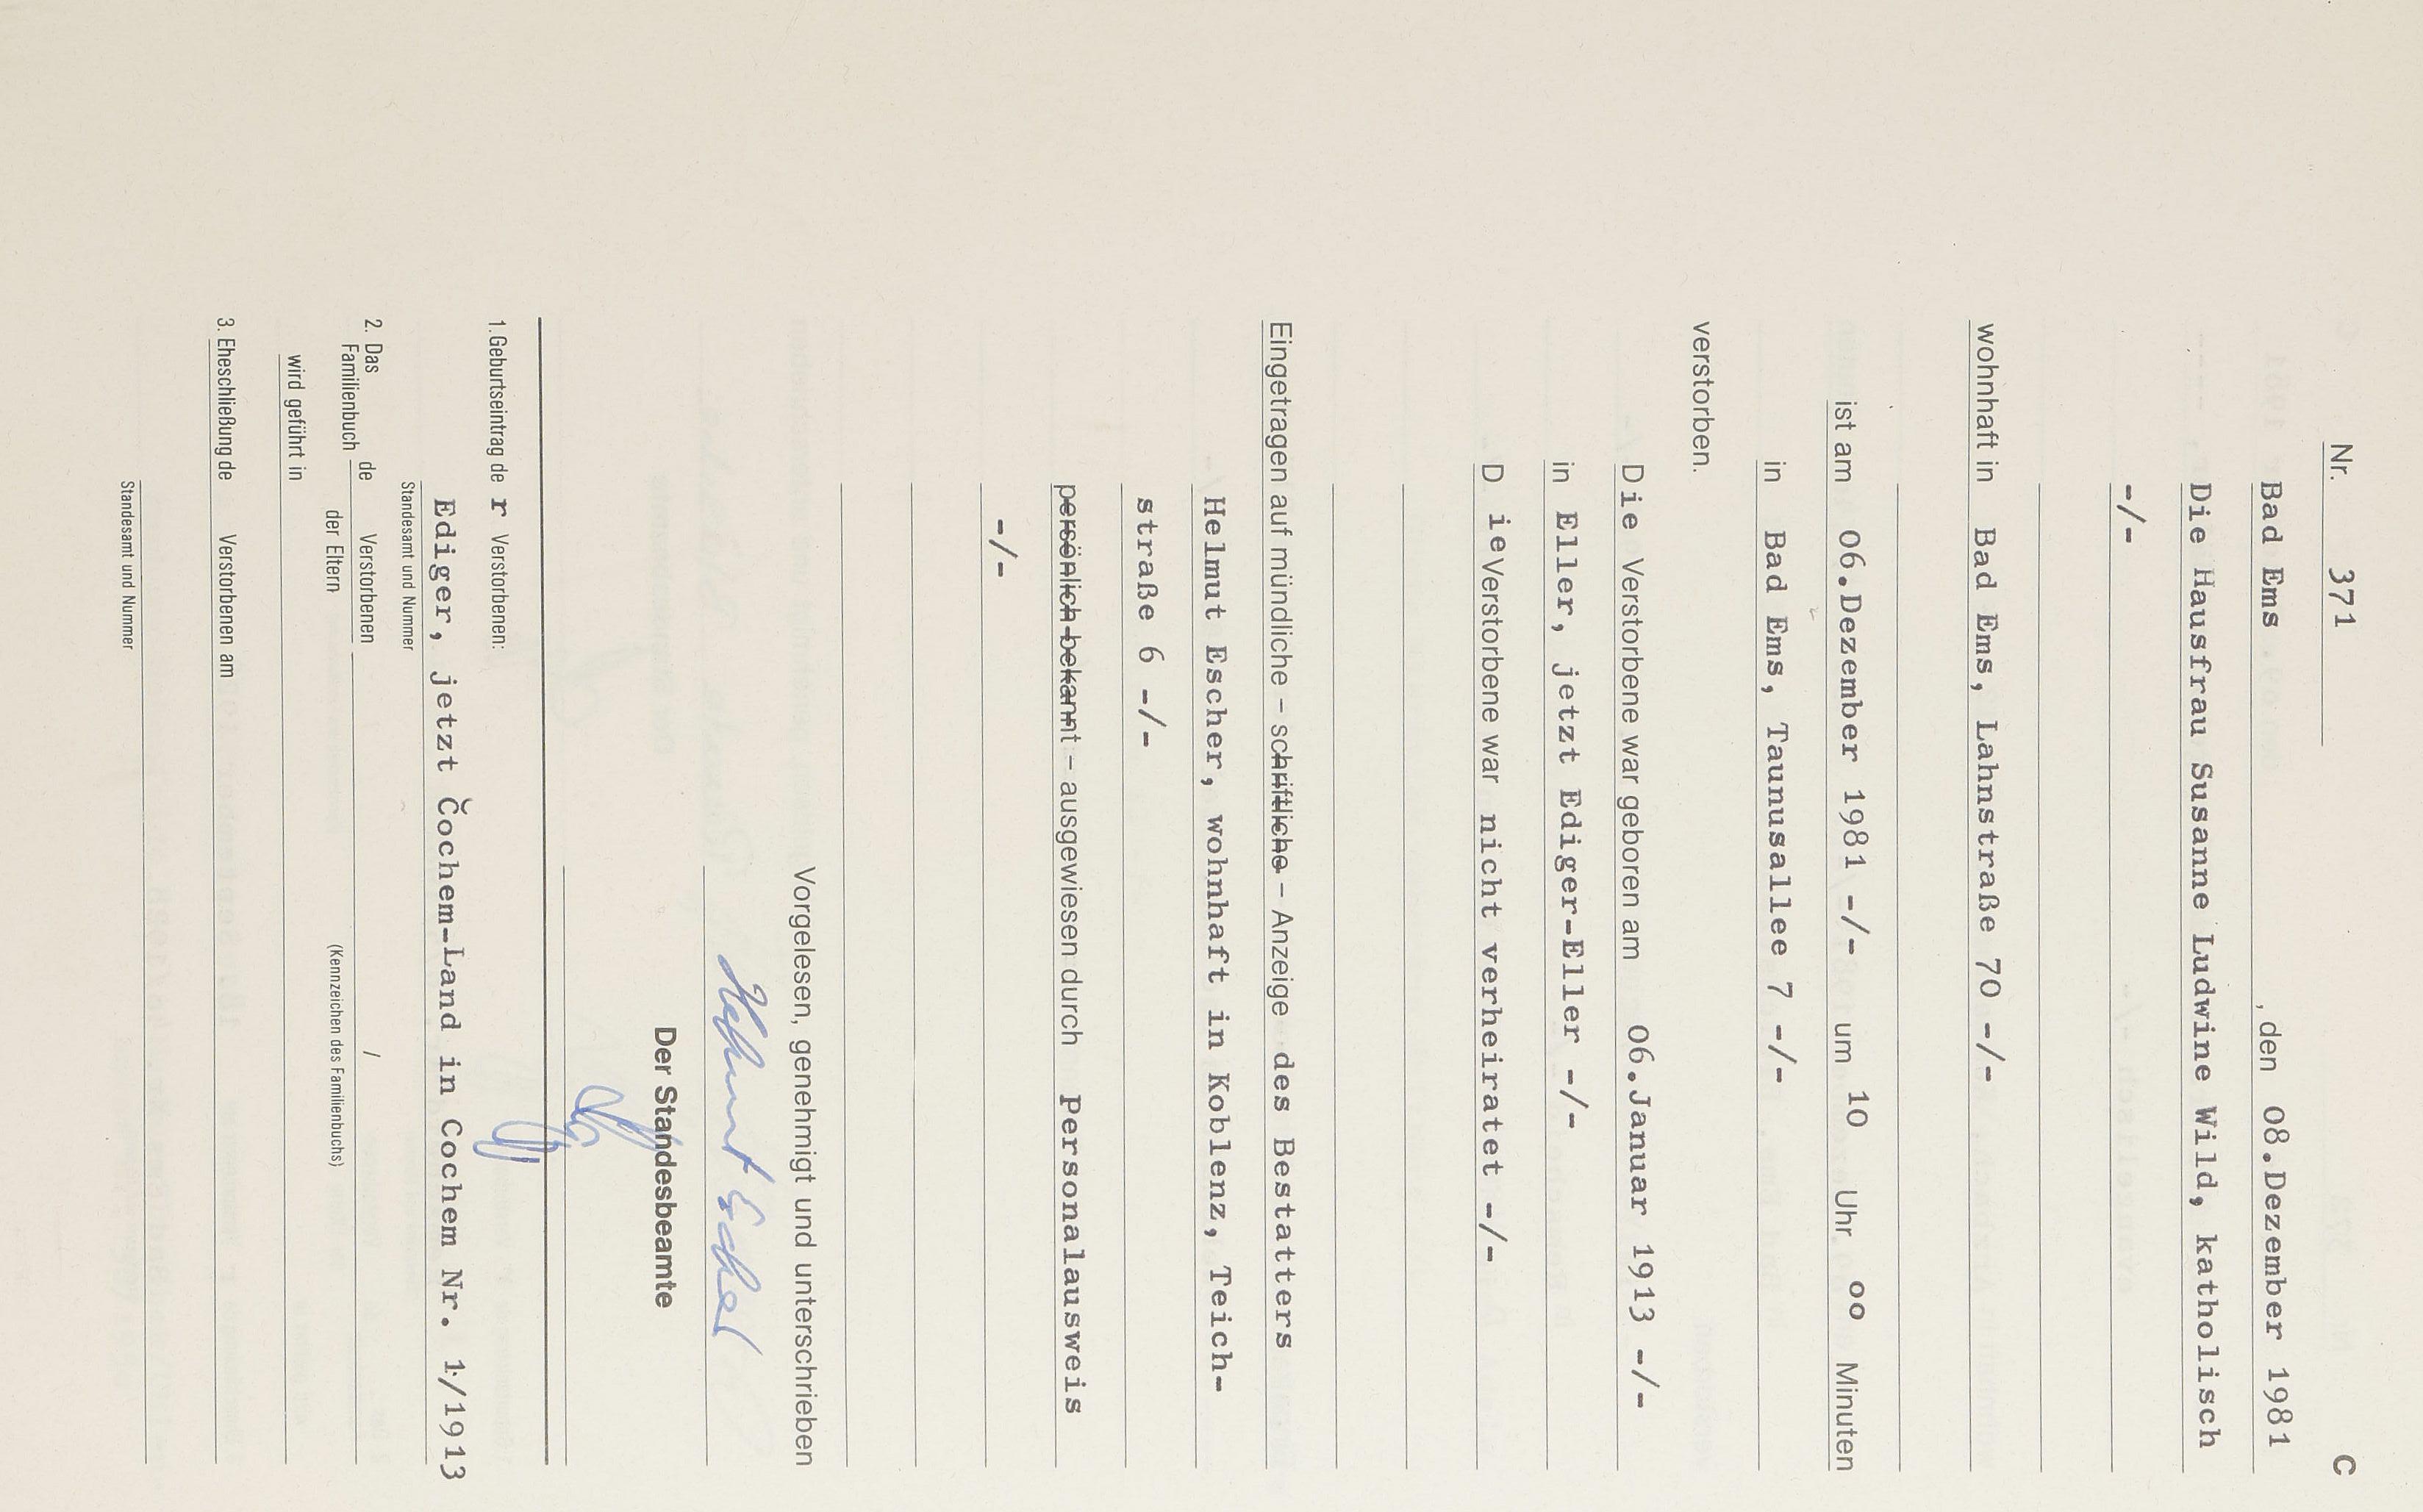 C
Nr. 371
Bad Ems , den 08.Dezember 1981
Die Hausfrau Susanne Ludwine Wild, katholisch
-/-
wohnhaft in Bad Ems, Lahnstraße 70 -/-
ist am 06.Dezember 1981 -/- um 10 Uhr oo Minuten
in Bad Ems, Taunusallee 7 -/-
verstorben.
Die Verstorbene war geboren am 06.Januar 1913 -/-
in Eller, jetzt Ediger-Eller -/-
D ieVerstorbene war nicht verheiratet -/-
Eingetragen auf mündliche – schriftliche – Anzeige des Bestatters
Helmut Escher, wohnhaft in Koblenz, Teich-
straße 6 -/-
persönlich bekannt – ausgewiesen durch Personalausweis
-/-
Vorgelesen, genehmigt und unterschrieben
Helmut Escher
Der Standesbeamte
1.Geburtseintrag de r Verstorbenen:
Ediger, jetzt Čochem-Land in Cochem Nr. 1/1913
Standesamt und Nummer
2. Das Familienbuch de Verstorbenen /
der Eltern (Kennzeichen des Familienbuchs)
wird geführt in
3. Eheschließung de Verstorbenen am
Standesamt und Nummer